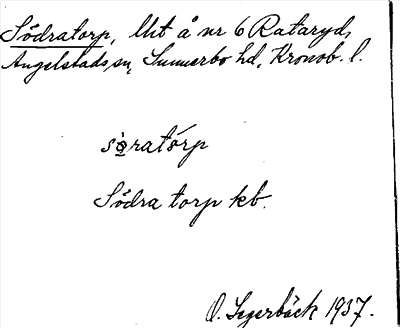 Södratorp, Uts å nr 6 Rataryd,
Angelstads sn, Sunnerbo hd, Kronob. l.
sø̀ratórp
Södra torp kb.
O. Segerbäck 1937.